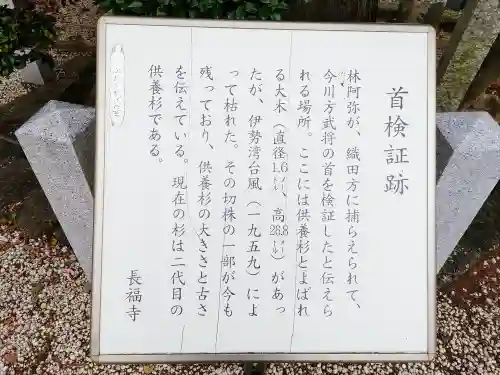 首検証跡
林阿弥が、織田方に捕らえられて、
今川方武将の首を検証したと伝えら
れる場所。ここには供養杉とよばれ
る大木（直径1.6メートル、高28.8メートル）があっ
たが、伊勢湾台風（一九五九）によ
って枯れた。その切株の一部が今も
残っており、供養杉の大きさと古さ
を伝えている。現在の杉は二代目の
供養杉である。
長福寺